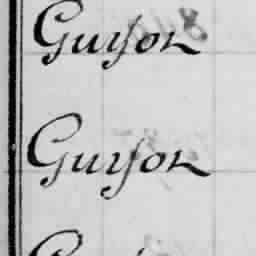 Guyon
Guyon